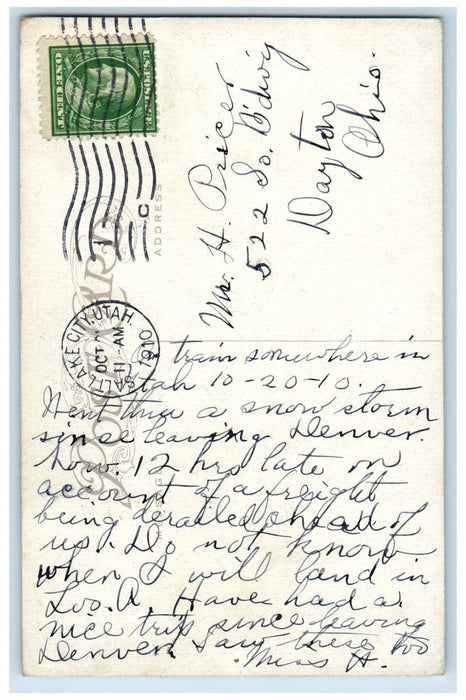 ONE CENT
U.S. POSTAGE
SALT LAKE CITY, UTAH.
OCT
11 - AM
1910
C
POST CARD
ADDRESS
Mr. H. Pricer
522 So. B'dw'y
Dayton
Ohio.
train somewhere in
Utah 10-20-10.
Went thru a snow storm
since leaving Denver.
Now 12 hrs late on
account of a freight
being derailed ahead of
us. Do not know
when I will land in
Los. A. Have had a
nice trip since leaving
Denver. Saw these too
Miss H.